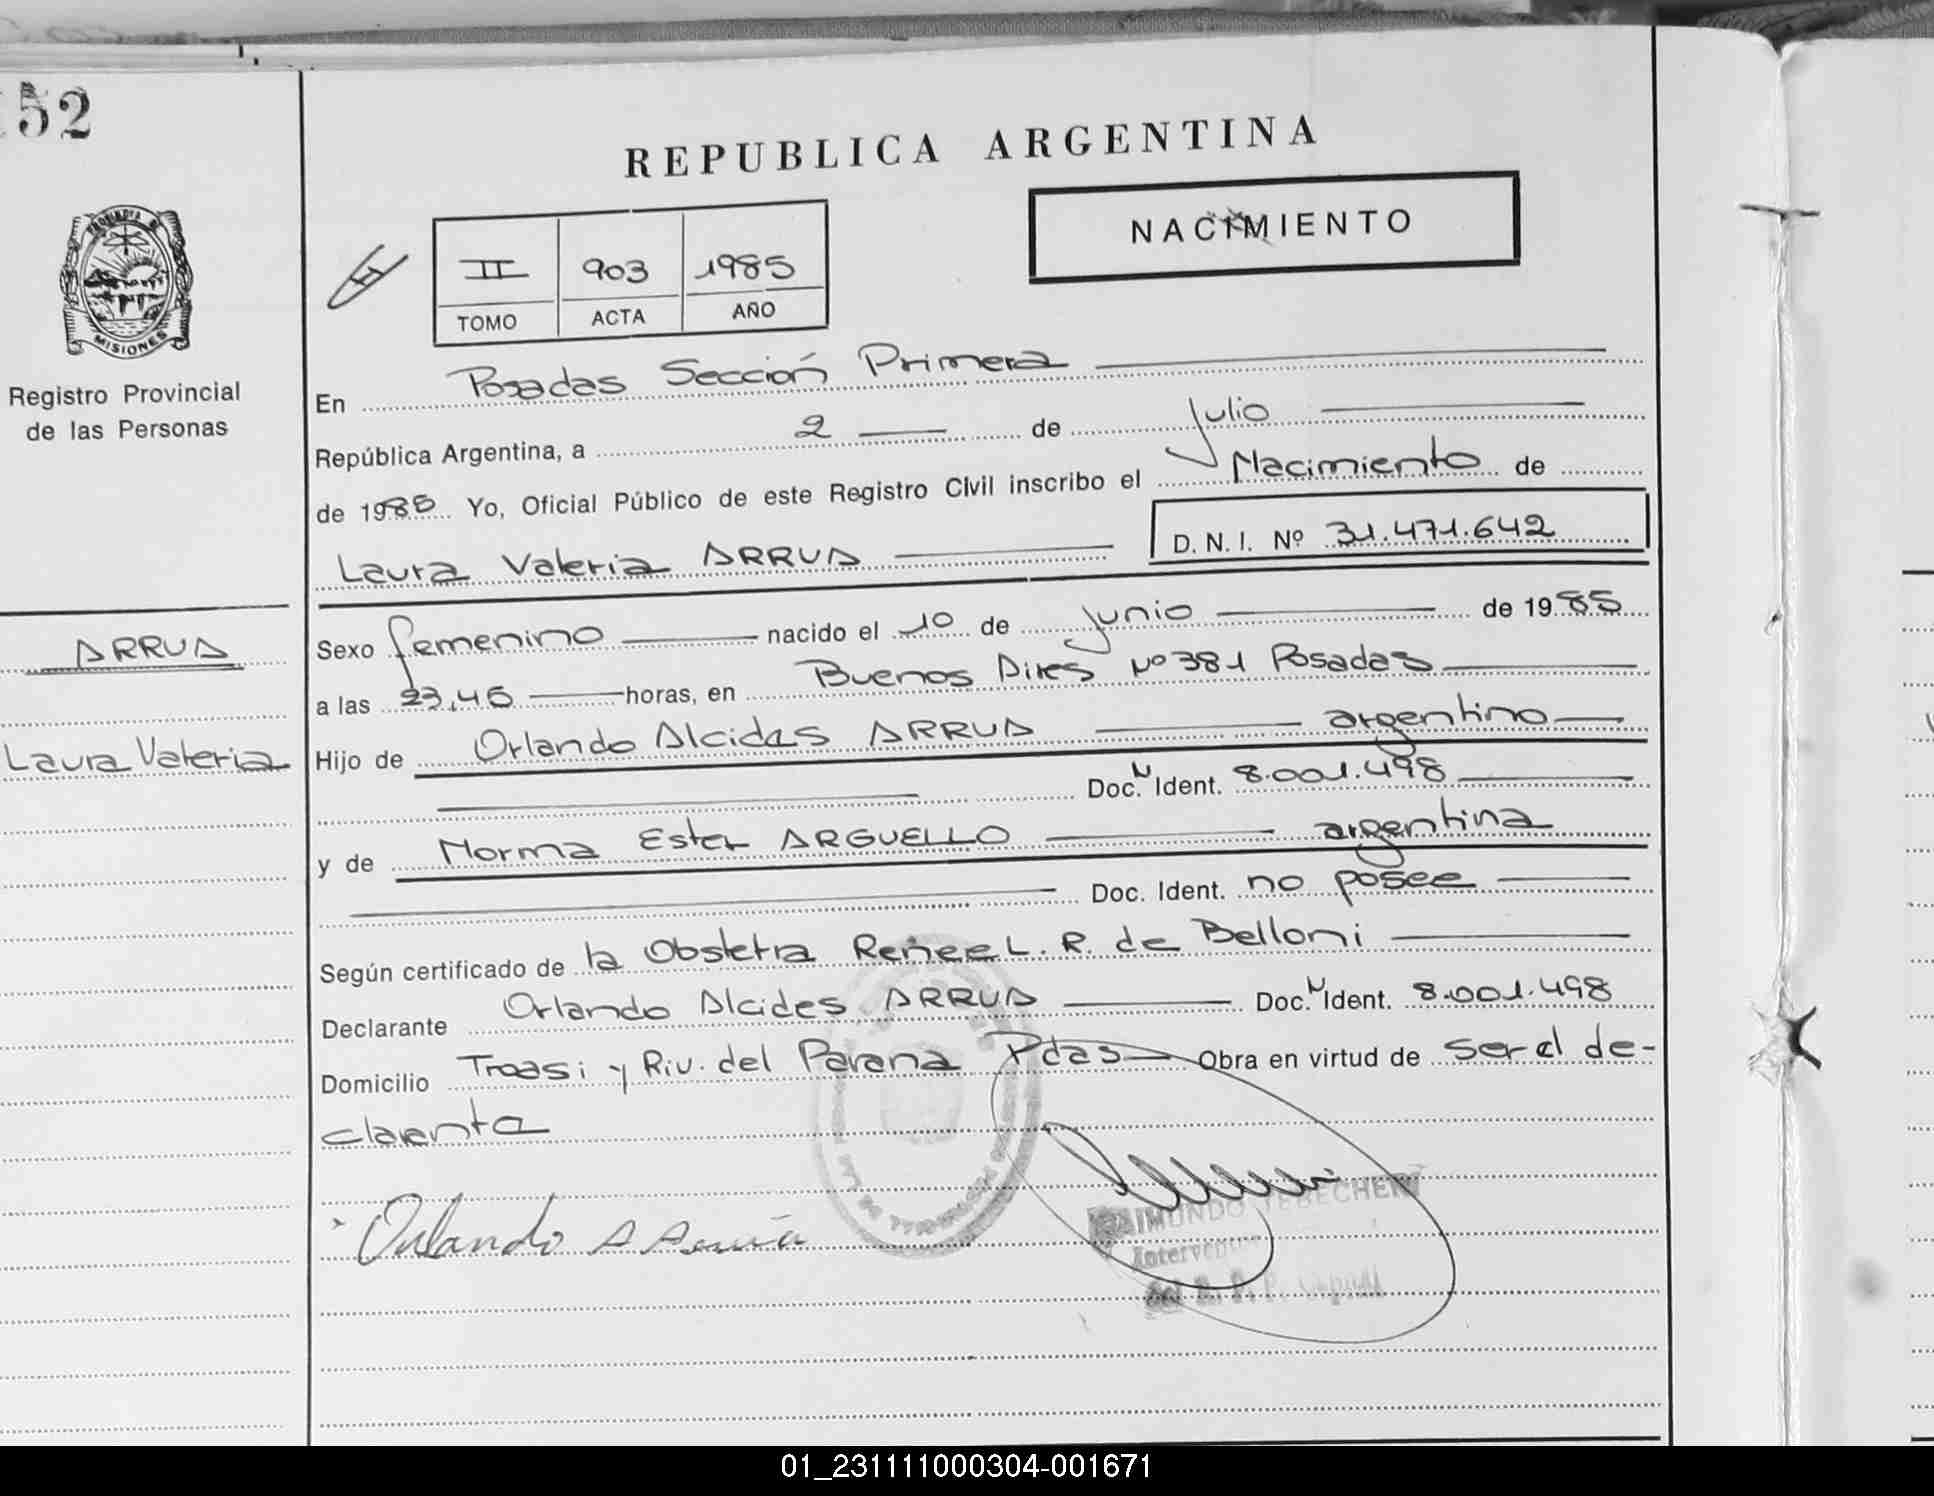 52
REPUBLICA ARGENTINA
NACIMIENTO
II 903 1985
TOMO ACTA AÑO
PROVINCIA DE
MISIONES
Registro Provincial
de las Personas
En Posadas Sección Primera
República Argentina, a 2 de Julio
de 1985 Yo, Oficial Público de este Registro Civil inscribo el Nacimiento de
Laura Valeria ARRUA D. N. I. Nº 31.471.642
ARRUA
Laura Valeria
Sexo femenino nacido el 10 de Junio de 1985
a las 23,45 horas, en Buenos Aires Nº 381 Posadas
Hijo de Orlando Alcides ARRUA argentino
Doc. N Ident. 8.001.498
y de Norma Ester ARGUELLO argentina
Doc. Ident. no posee
Según certificado de la Obstetra Reñee L. R. de Belloni
Declarante Orlando Alcides ARRUA Doc. N Ident. 8.001.498
Domicilio y Riv. del Parana Pdas Obra en virtud de ser el de-
clarante
Orlando A Arrúa
RAIMUNDO
01_231111000304-001671